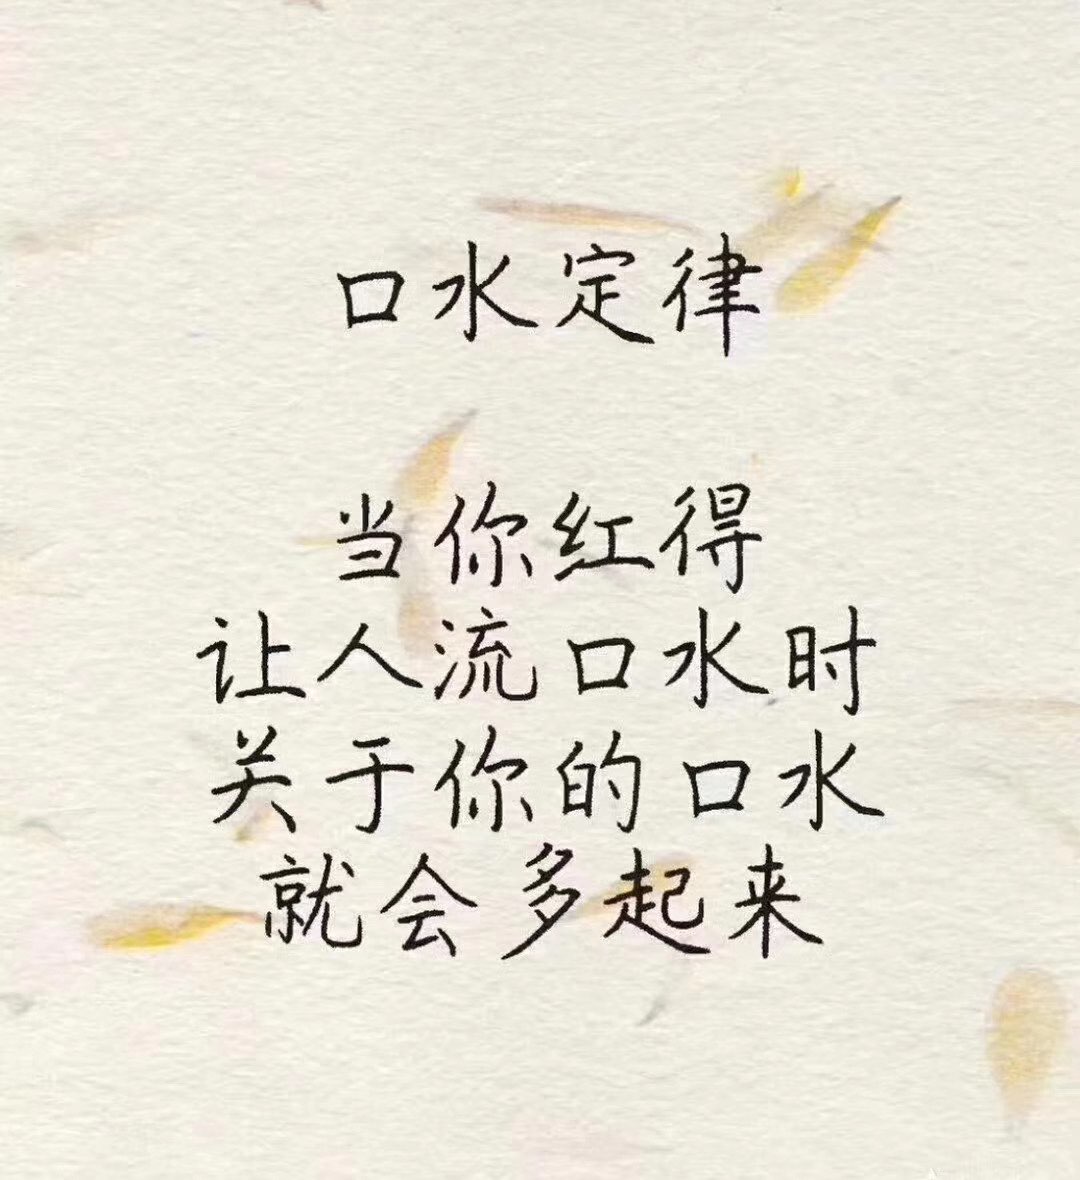 口水定律
当你红得
让人流口水时
关于你的口水
就会多起来